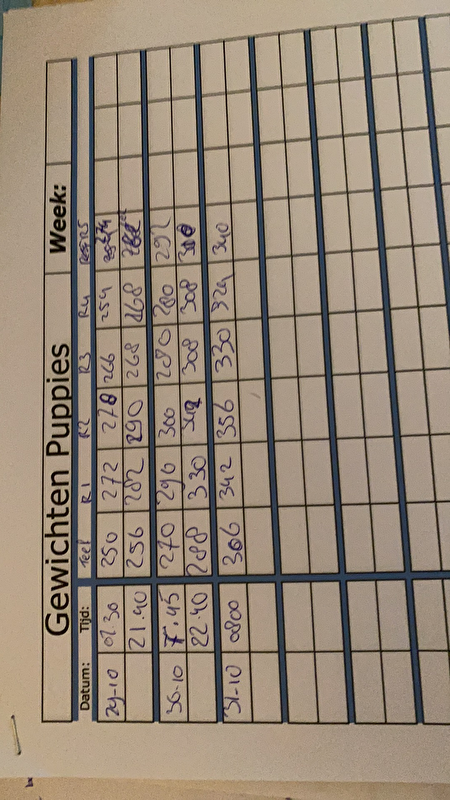 Gewichten Puppies Week:
Datum: Tijd: Teef R1 R2 R3 R4 R5
29-10 07.30 250 272 278 266 254 274
21.40 256 282 290 268 268
30-10 7.45 270 290 300 280 280 292
22.40 288 330 308 308
31-10 0800 306 342 356 330 324 340